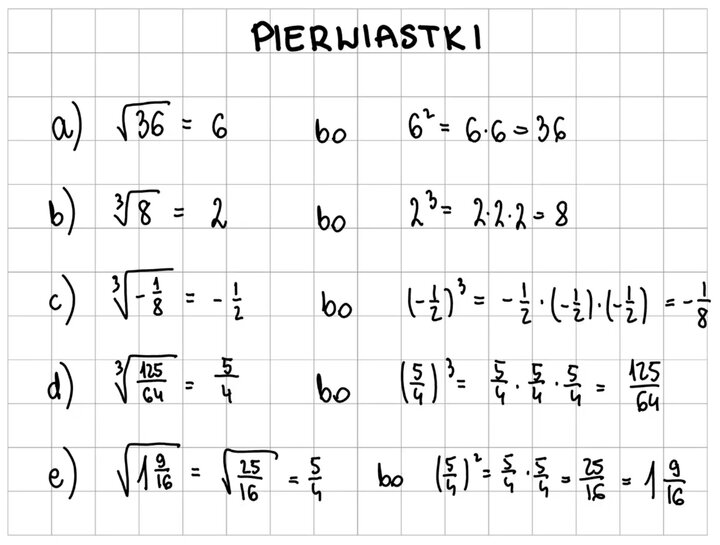 PIERWIASTKI
a) √36 = 6 bo 6² = 6·6 = 36
b) ³√8 = 2 bo 2³ = 2·2·2 = 8
c) ³√(-1/8) = -1/2 bo (-1/2)³ = -1/2·(-1/2)·(-1/2) = -1/8
d) ³√(125/64) = 5/4 bo (5/4)³ = 5/4·5/4·5/4 = 125/64
e) √(1 9/16) = √(25/16) = 5/4 bo (5/4)² = 5/4·5/4 = 25/16 = 1 9/16